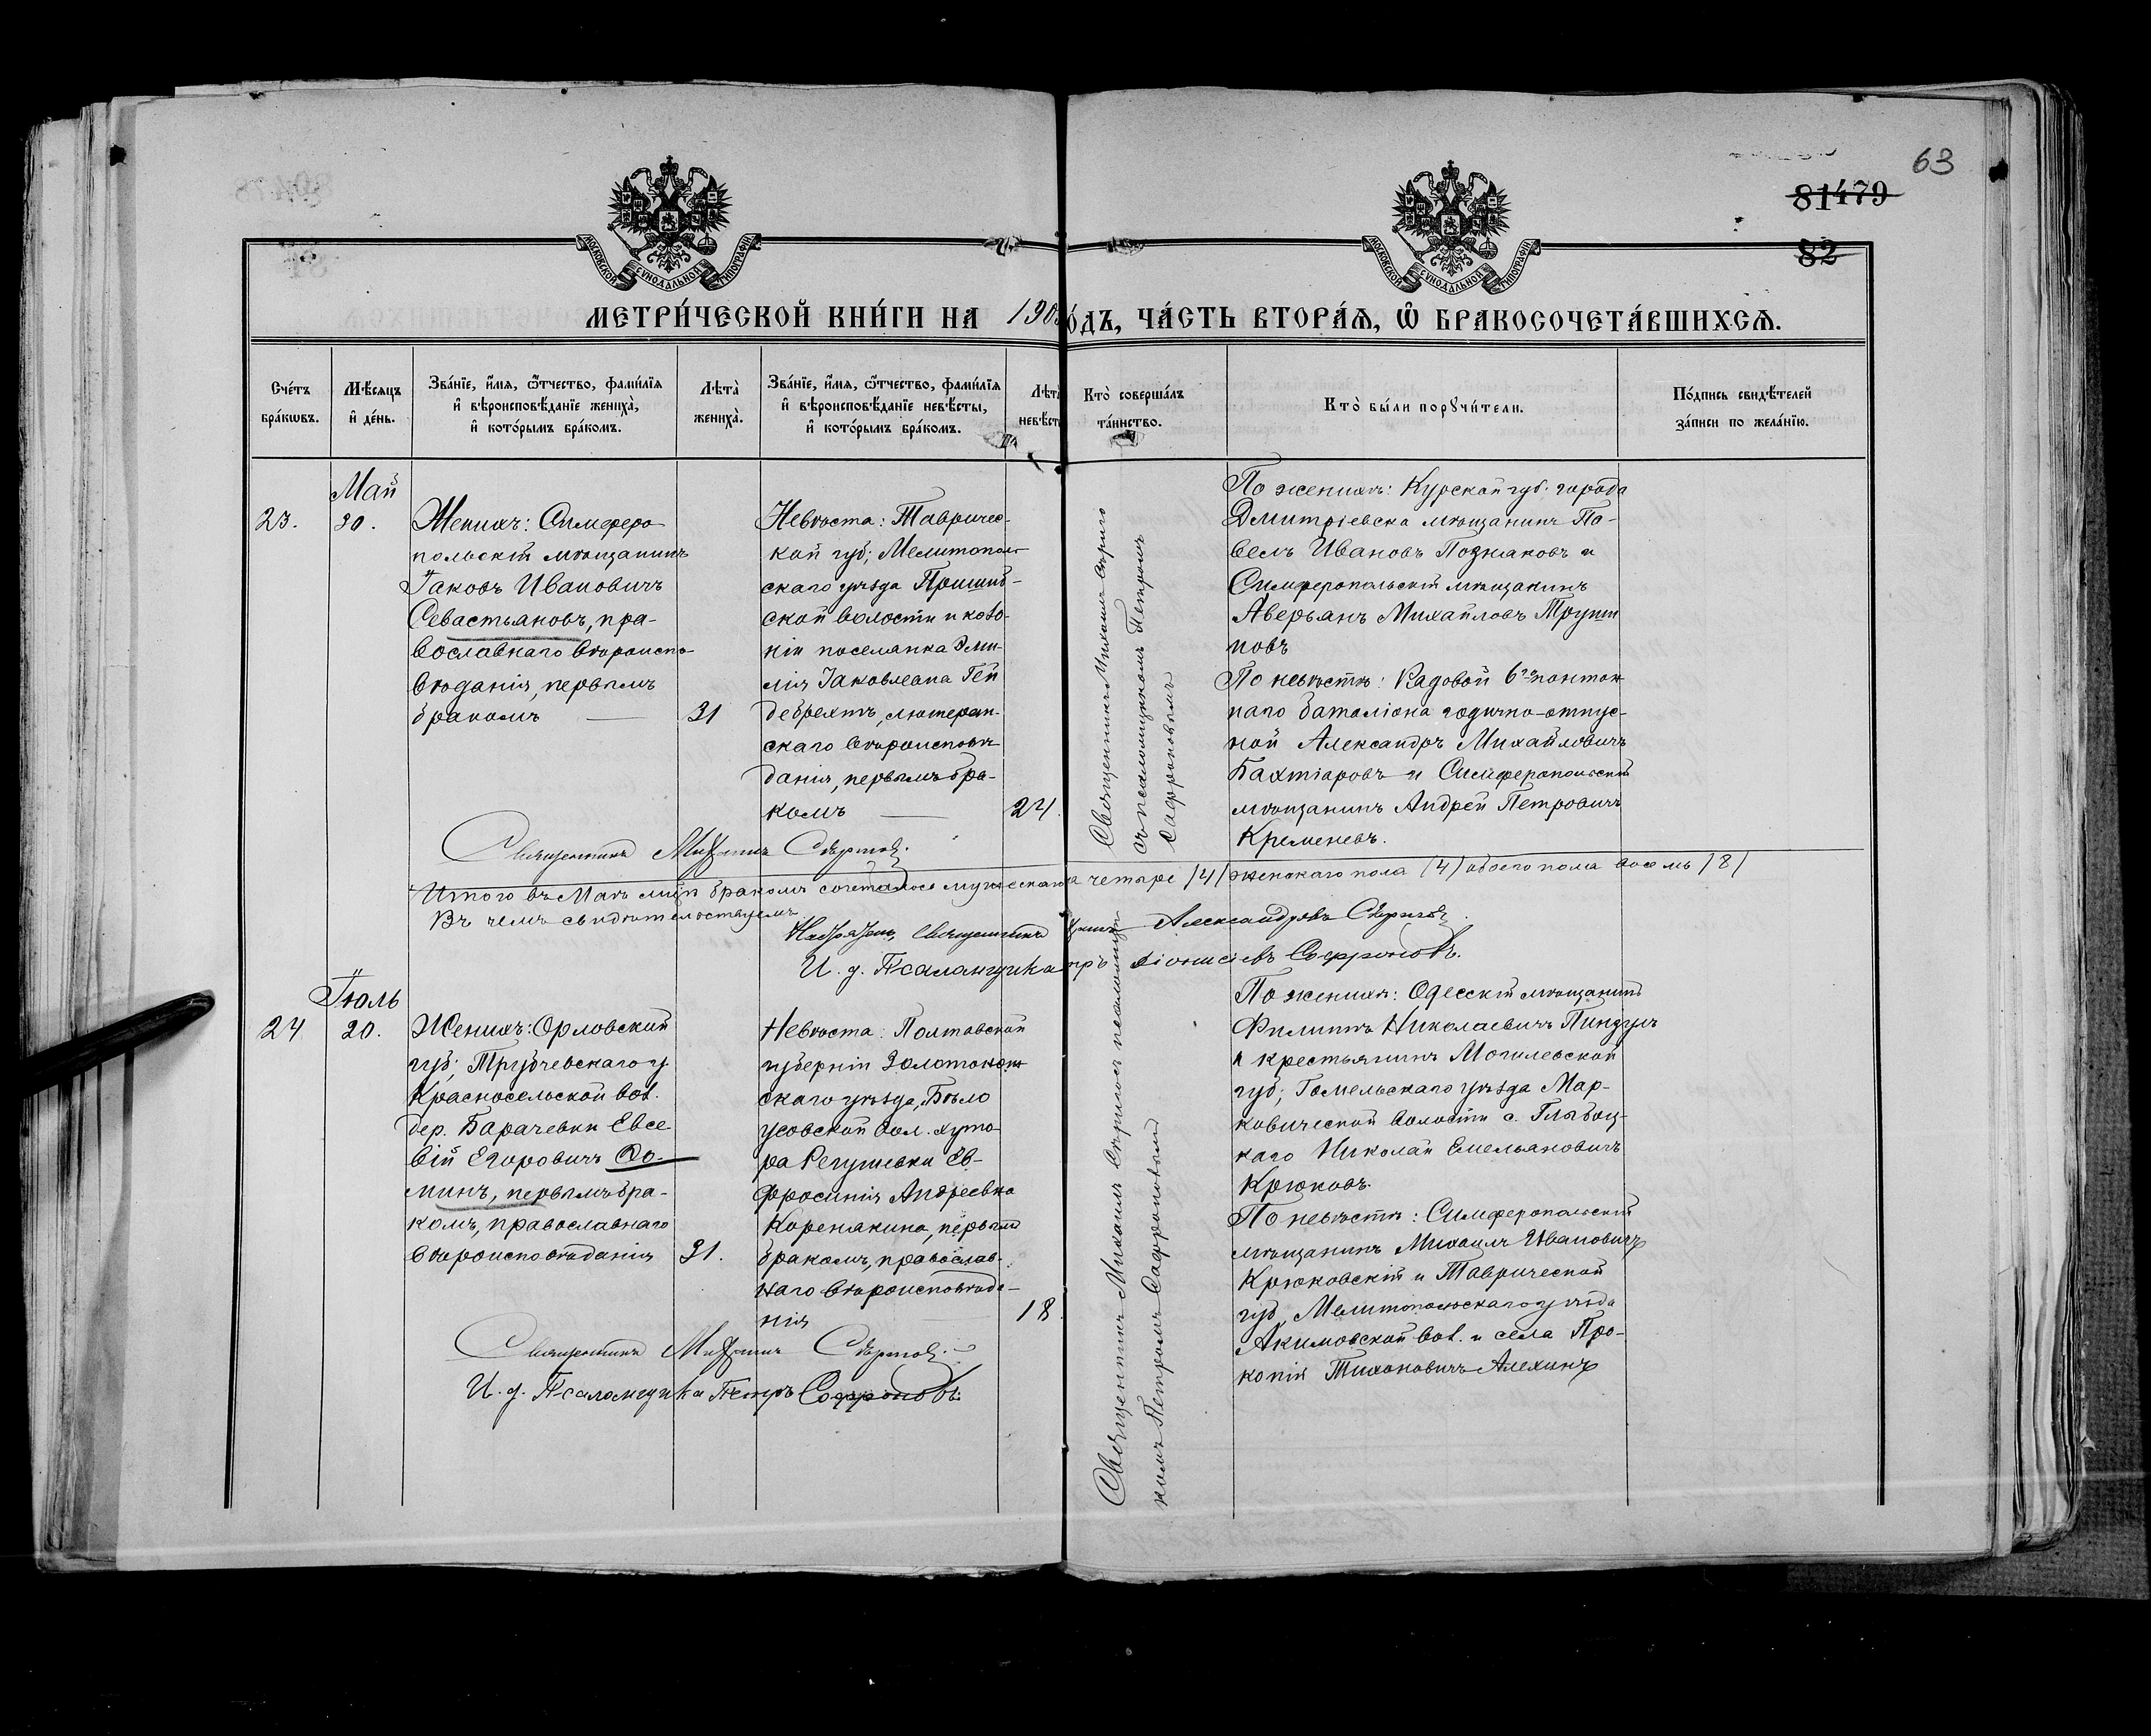 63
81479
82
МОСКОВСКОЙ СѴНОДАЛЬНОЙ ТИПОГРАФІИ
МОСКОВСКОЙ СѴНОДАЛЬНОЙ ТИПОГРАФІИ
МЕТРИ́ЧЕСКОЙ КНИ́ГИ НА 190
ОДЪ, ЧА́СТЬ ВТОРА́Ѧ, Ѽ БРАКОСОЧЕТА́ВШИХСѦ.
Сче́тъ
бра́кѡвъ.
Мѣ́сѧцъ
и҆ де́нь.
Зва́нїе, и҆́мѧ, ѻ҆́тчество, фами́лїѧ
и҆ вѣроисповѣ́данїе жениха̀,
и҆ кото́рымъ бра́комъ.
Лѣта̀
жениха̀.
Зва́нїе, и҆́мѧ, ѻ҆́тчество, фами́лїѧ
и҆ вѣроисповѣ́данїе невѣ́сты,
и҆ кото́рымъ бра́комъ.
Лѣт
невѣст
Кто̀ соверша́лъ
та́инство.
Кто̀ бы́ли порꙋчи́тели.
По́дпись свидѣ́телей
за́писи по жела́нїю.
Май
23.
30.
Женихъ: Симферо-
польскій мѣщанинъ
Іаковъ Ивановичъ
Севастьяновъ, пра-
вославнаго вѣроиспо-
вѣданія, первымъ
бракомъ
31
Невѣста: Тавричес-
кой губ; Мелитополь
скаго уѣзда Пришиб-
ской волости и коло-
ніи поселянка Эми-
лія Іаковлевна Гей
дебрехтъ, лютеран-
скаго вѣроисповѣ
данія, первымъ бра-
комъ
24.
Священникъ Михаилъ Сѣриго
съ псаломщикомъ Петромъ
Сафроновымъ
По женихѣ: Курской губ. города
Дмитріевска мѣщанинъ Па-
велъ Ивановъ Позняковъ и
Симферопольскій мѣщанинъ
Аверьянъ Михайловъ
новъ
По невѣстѣ: Рядовой 6го понтон
наго баталіона годично-отпус-
ной Александръ Михайловичъ
Бахтіаровъ и Симферопольскій
мѣщанинъ Андрей Петровичъ
Кременевъ.
Священникъ Михаилъ
Итого въ Маѣ мцѣ бракомъ сочеталось мужескаго четыре /4/ женскаго пола /4/ обоего пола восемь /8/
Въ чемъ свидѣтельствуемъ
Священникъ Александровъ
И. д. Псаломщика Діонисіевъ Софроновъ.
Іюль
24
20.
Женихъ: Орловский
губ; Трубчевскаго у.
Красносельской вол.
дер. Барачевки Евсе
вій Егоровичъ Фо-
минъ, первымъ бра-
комъ, православнаго
вѣроисповѣданія
31.
Невѣста: Полтавской
губерніи Золотонош
скаго уѣзда, Бѣло
усовской вол. хуто-
ра Ев-
фросинія Андреевна
Коренякина, первымъ
бракомъ, православ-
наго вѣроисповѣда-
нія
18
Священникъ Михаилъ Сѣриго съ псаломщи
комъ Петромъ Сафроновымъ
По женихѣ: Одесскій мѣщанинъ
Филиппъ Николаевичъ
и крестьянинъ Могилевской
губ; Гомельскаго уѣзда Мар-
ковической волости с. Глыбоц-
каго Николай Емельяновичъ
Крюковъ.
По невѣстѣ: Симферопольскій
мѣщанинъ Михаилъ Ивановичъ
Крюковскій и Таврической
губ, Мелитопольскаго уѣзда
Акимовской вол. и села Про-
копій Тихоновичъ Алехинъ
Священникъ Михаилъ
И. д. Псаломщика Петръ Софроновъ.